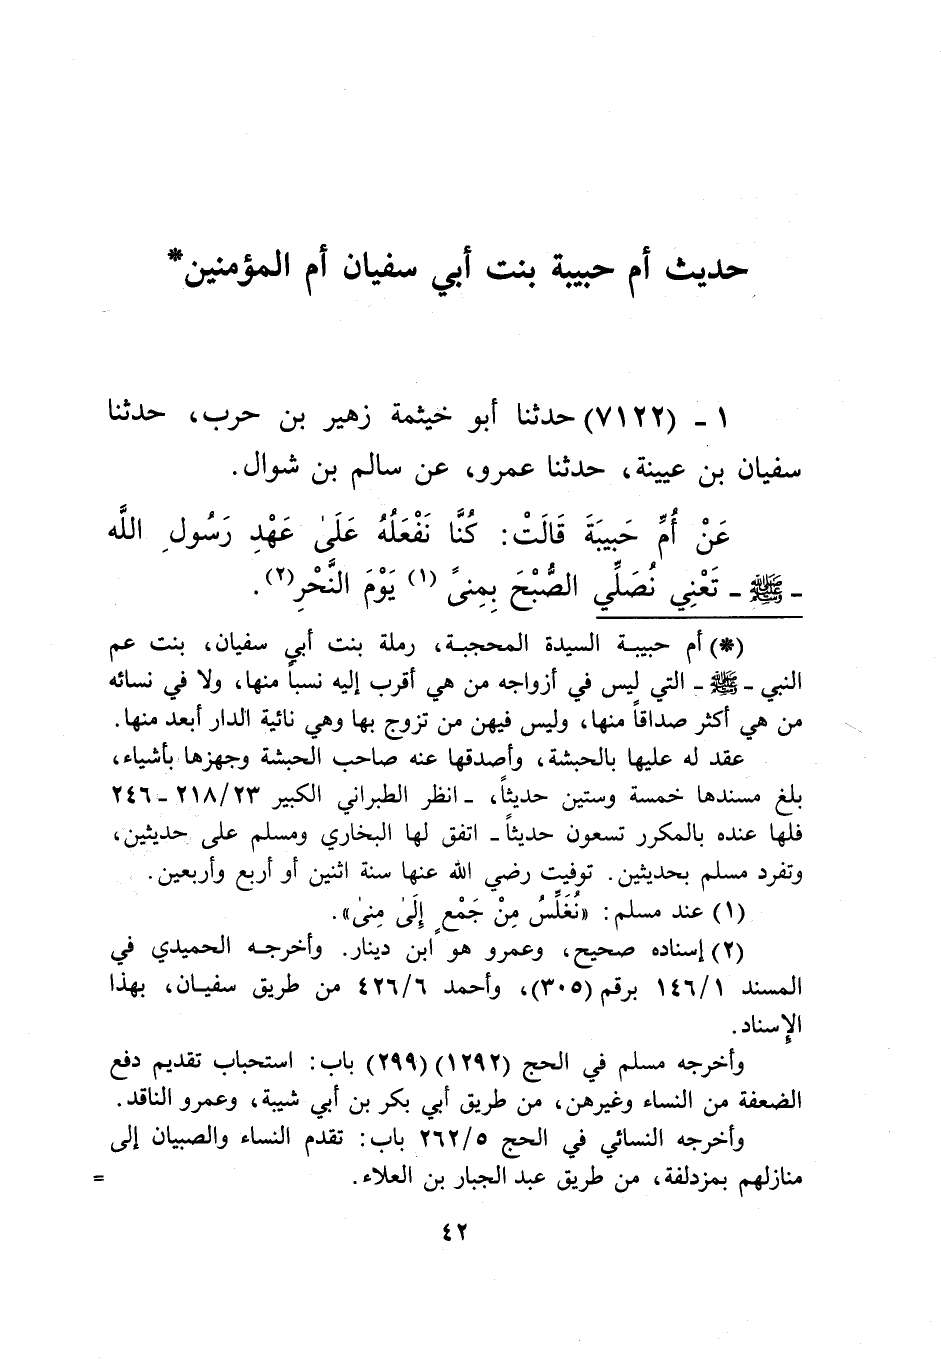 حديث أم حبيبة بنت أبي سفيان أم المؤمنين*
١ ـ (٧١٢٢) حدثنا أبو خيثمة زهير بن حرب، حدثنا
سفيان بن عيينة، حدثنا عمرو، عن سالم بن شوال.
عَنْ أُمِّ حَبِيبَةَ قَالَتْ: كُنَّا نَفْعَلُهُ عَلَىٰ عَهْدِ رَسُولِ اللَّه
ـ ﷺ ـ تَعْنِي نُصَلِّي الصُّبْحَ بِمِنىً (١) يَوْمَ النَّحْرِ(٢).
(*) أم حبيبة السيدة المحجبة، رملة بنت أبي سفيان، بنت عم
النبي ـ ﷺ ـ التي ليس في أزواجه من هي أقرب إليه نسباً منها، ولا في نسائه
من هي أكثر صداقاً منها، وليس فيهن من تزوج بها وهي نائية الدار أبعد منها.
عقد له عليها بالحبشة، وأصدقها عنه صاحب الحبشة وجهزها بأشياء،
بلغ مسندها خمسة وستين حديثاً، ـ انظر الطبراني الكبير ٢١٨/٢٣ ـ ٢٤٦
فلها عنده بالمكرر تسعون حديثاً ـ اتفق لها البخاري ومسلم على حديثين،
وتفرد مسلم بحديثين. توفيت رضي الله عنها سنة اثنين أو أربع وأربعين.
(١) عند مسلم: «نُغَلِّسُ مِنْ جَمْعٍ إِلَىٰ مِنىٰ».
(٢) إسناده صحيح، وعمرو هو ابن دينار. وأخرجه الحميدي في
المسند ١٤٦/١ برقم (٣٠٥)، وأحمد ٤٢٦/٦ من طريق سفيان، بهذا
الإِسناد.
وأخرجه مسلم في الحج (١٢٩٢) (٢٩٩) باب: استحباب تقديم دفع
الضعفة من النساء وغيرهن، من طريق أبي بكر بن أبي شيبة، وعمرو الناقد.
وأخرجه النسائي في الحج ٢٦٢/٥ باب: تقدم النساء والصبيان إلى
منازلهم بمزدلفة، من طريق عبد الجبار بن العلاء. =
٤٢